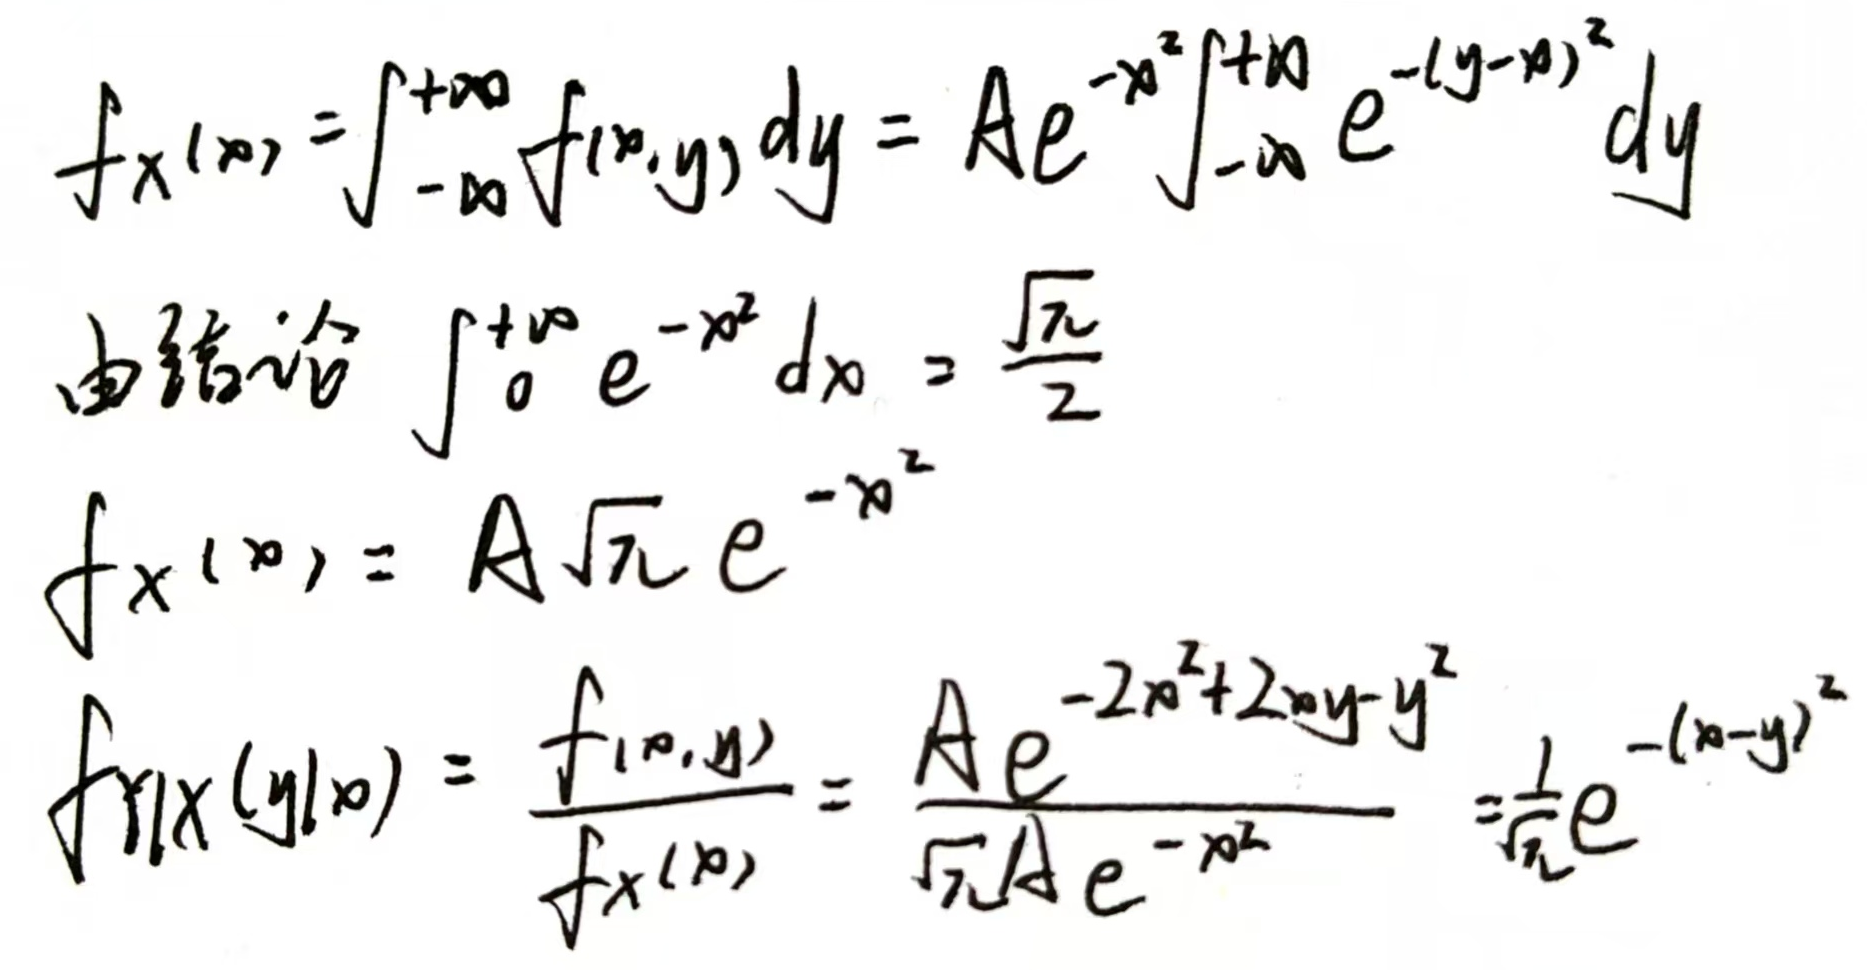 f_X(x) = ∫_{-∞}^{+∞} f(x,y) dy = A e^{-x^2} ∫_{-∞}^{+∞} e^{-(y-x)^2} dy
由结论 ∫_0^{+∞} e^{-x^2} dx = \frac{\sqrt{π}}{2}
f_X(x) = A \sqrt{π} e^{-x^2}
f_{Y|X}(y|x) = \frac{f(x,y)}{f_X(x)} = \frac{A e^{-2x^2+2xy-y^2}}{\sqrt{π} A e^{-x^2}} = \frac{1}{\sqrt{π}} e^{-(x-y)^2}